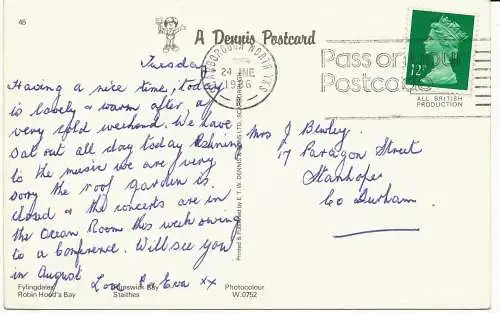 45
A Dennis Postcard
SCARBOROUGH NORTH YKS
24 JNE
1986
Pass on
Postcode
12P
ALL BRITISH
PRODUCTION
Tuesday
Having a nice time, today
is lovely & warm after a
very cold weekend. We have
sat out all day today listening
to the music we are very
sorry the roof garden is
closed & the concerts are in
the Ocean Room this week owing
to a Conference. Will see you
in August Love Eva xx
Mrs J Bewley
17 Paragon Street
Stanhope
Co Durham
Printed & Published by E. T. W. DENNIS
Fylingdales
Robin Hood's Bay
Runswick Bay
Staithes
Photocolour
W.0752